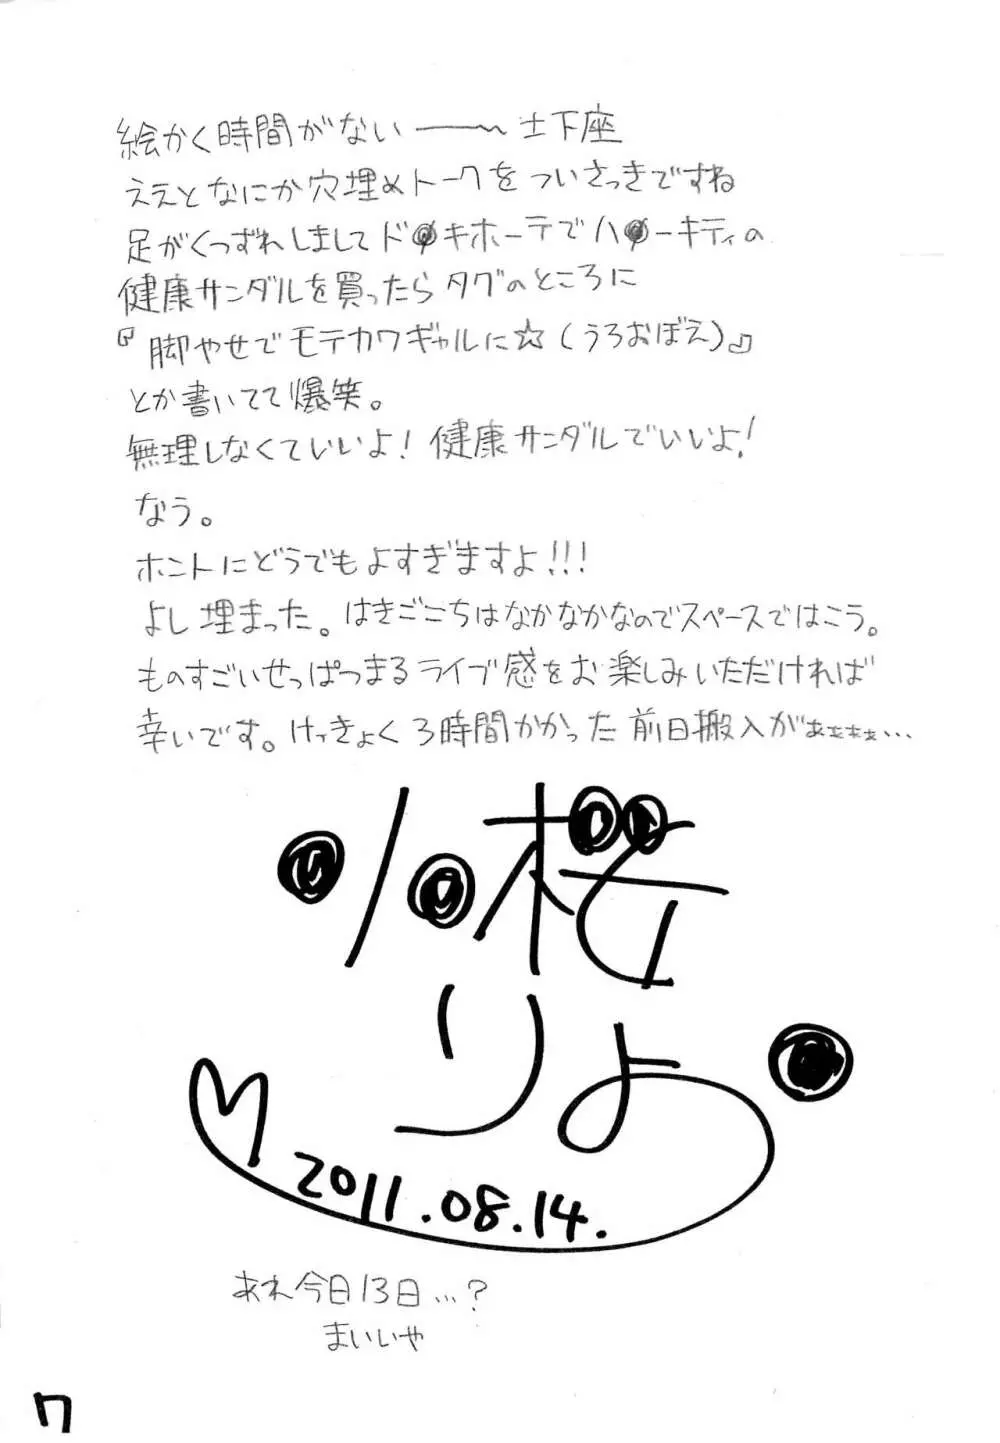 絵かく時間がない――〜土下座
ええとなにか穴埋めトークをついさっきですね
足がくつずれしましてド●キホーテでハ●ーキティの
健康サンダルを買ったらタグのところに
『脚やせでモテカワギャルに☆(うろおぼえ)』
とか書いてて爆笑。
無理しなくていいよ!健康サンダルでいいよ!
なう。
ホントにどうでもよすぎますよ!!!
よし埋まった。はきごこちはなかなかなのでスペースではこう。
ものすごいせっぱつまるライブ感をお楽しみいただければ
幸いです。けっきょく3時間かかった前日搬入がぁぁぁぁ…
小桜
りょ
2011.08.14.
あれ今日13日…?
まいいや
7